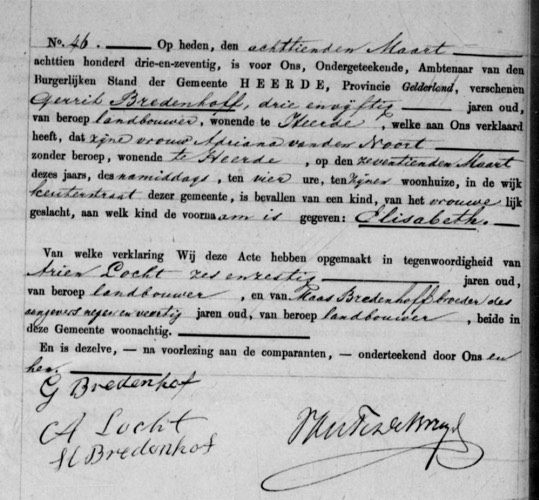 No. 46. Op heden, den achttienden Maart
achttien honderd drie-en-zeventig, is voor Ons, Ondergeteekende, Ambtenaar van den
Burgerlijken Stand der Gemeente HEERDE, Provincie Gelderland, verschenen
Gerrit Bredenhoff, drie en vijftig jaren oud,
van beroep landbouwer, wonende te Heerde, welke aan Ons verklaard
heeft, dat zijne vrouw Adriana van den Noort
zonder beroep, wonende te Heerde, op den zeventienden Maart
dezes jaars, des namiddags, ten vier ure, ten zijnen woonhuize, in de wijk
dezer gemeente, is bevallen van een kind, van het vrouwelijk
geslacht, aan welk kind de voornaam is gegeven: Elisabeth.
Van welke verklaring Wij deze Acte hebben opgemaakt in tegenwoordigheid van
Arien Locht zes en zestig jaren oud,
van beroep landbouwer, en van Maas Bredenhoff, broeder des
aangevers negen en veertig jaren oud, van beroep landbouwer, beide in
deze Gemeente woonachtig.
En is dezelve, — na voorlezing aan de comparanten, — onderteekend door Ons en
hen.
G Bredenhof
A Locht
M Bredenhof